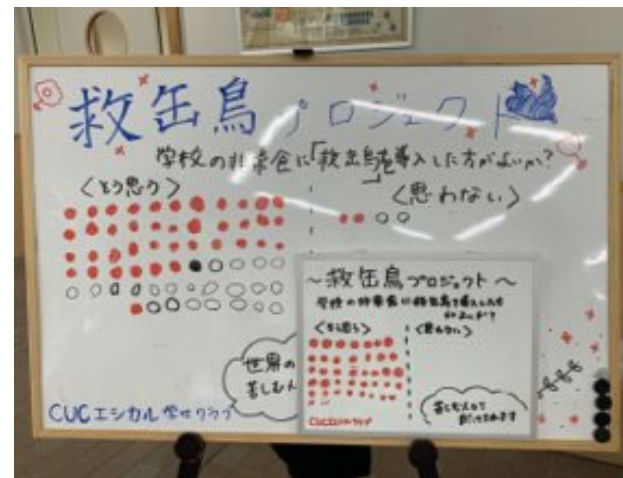 救缶鳥プロジェクト
学校の非常食に「救缶鳥」を導入した方がよいか?
〈そう思う〉
〈思わない〉
世界の
苦しむ人
CUCエシカル学生クラブ
～救缶鳥プロジェクト～
学校の非常食に救缶鳥を導入した方
がよいか?
〈そう思う〉
〈思わない〉
CUCエシカルクラブ